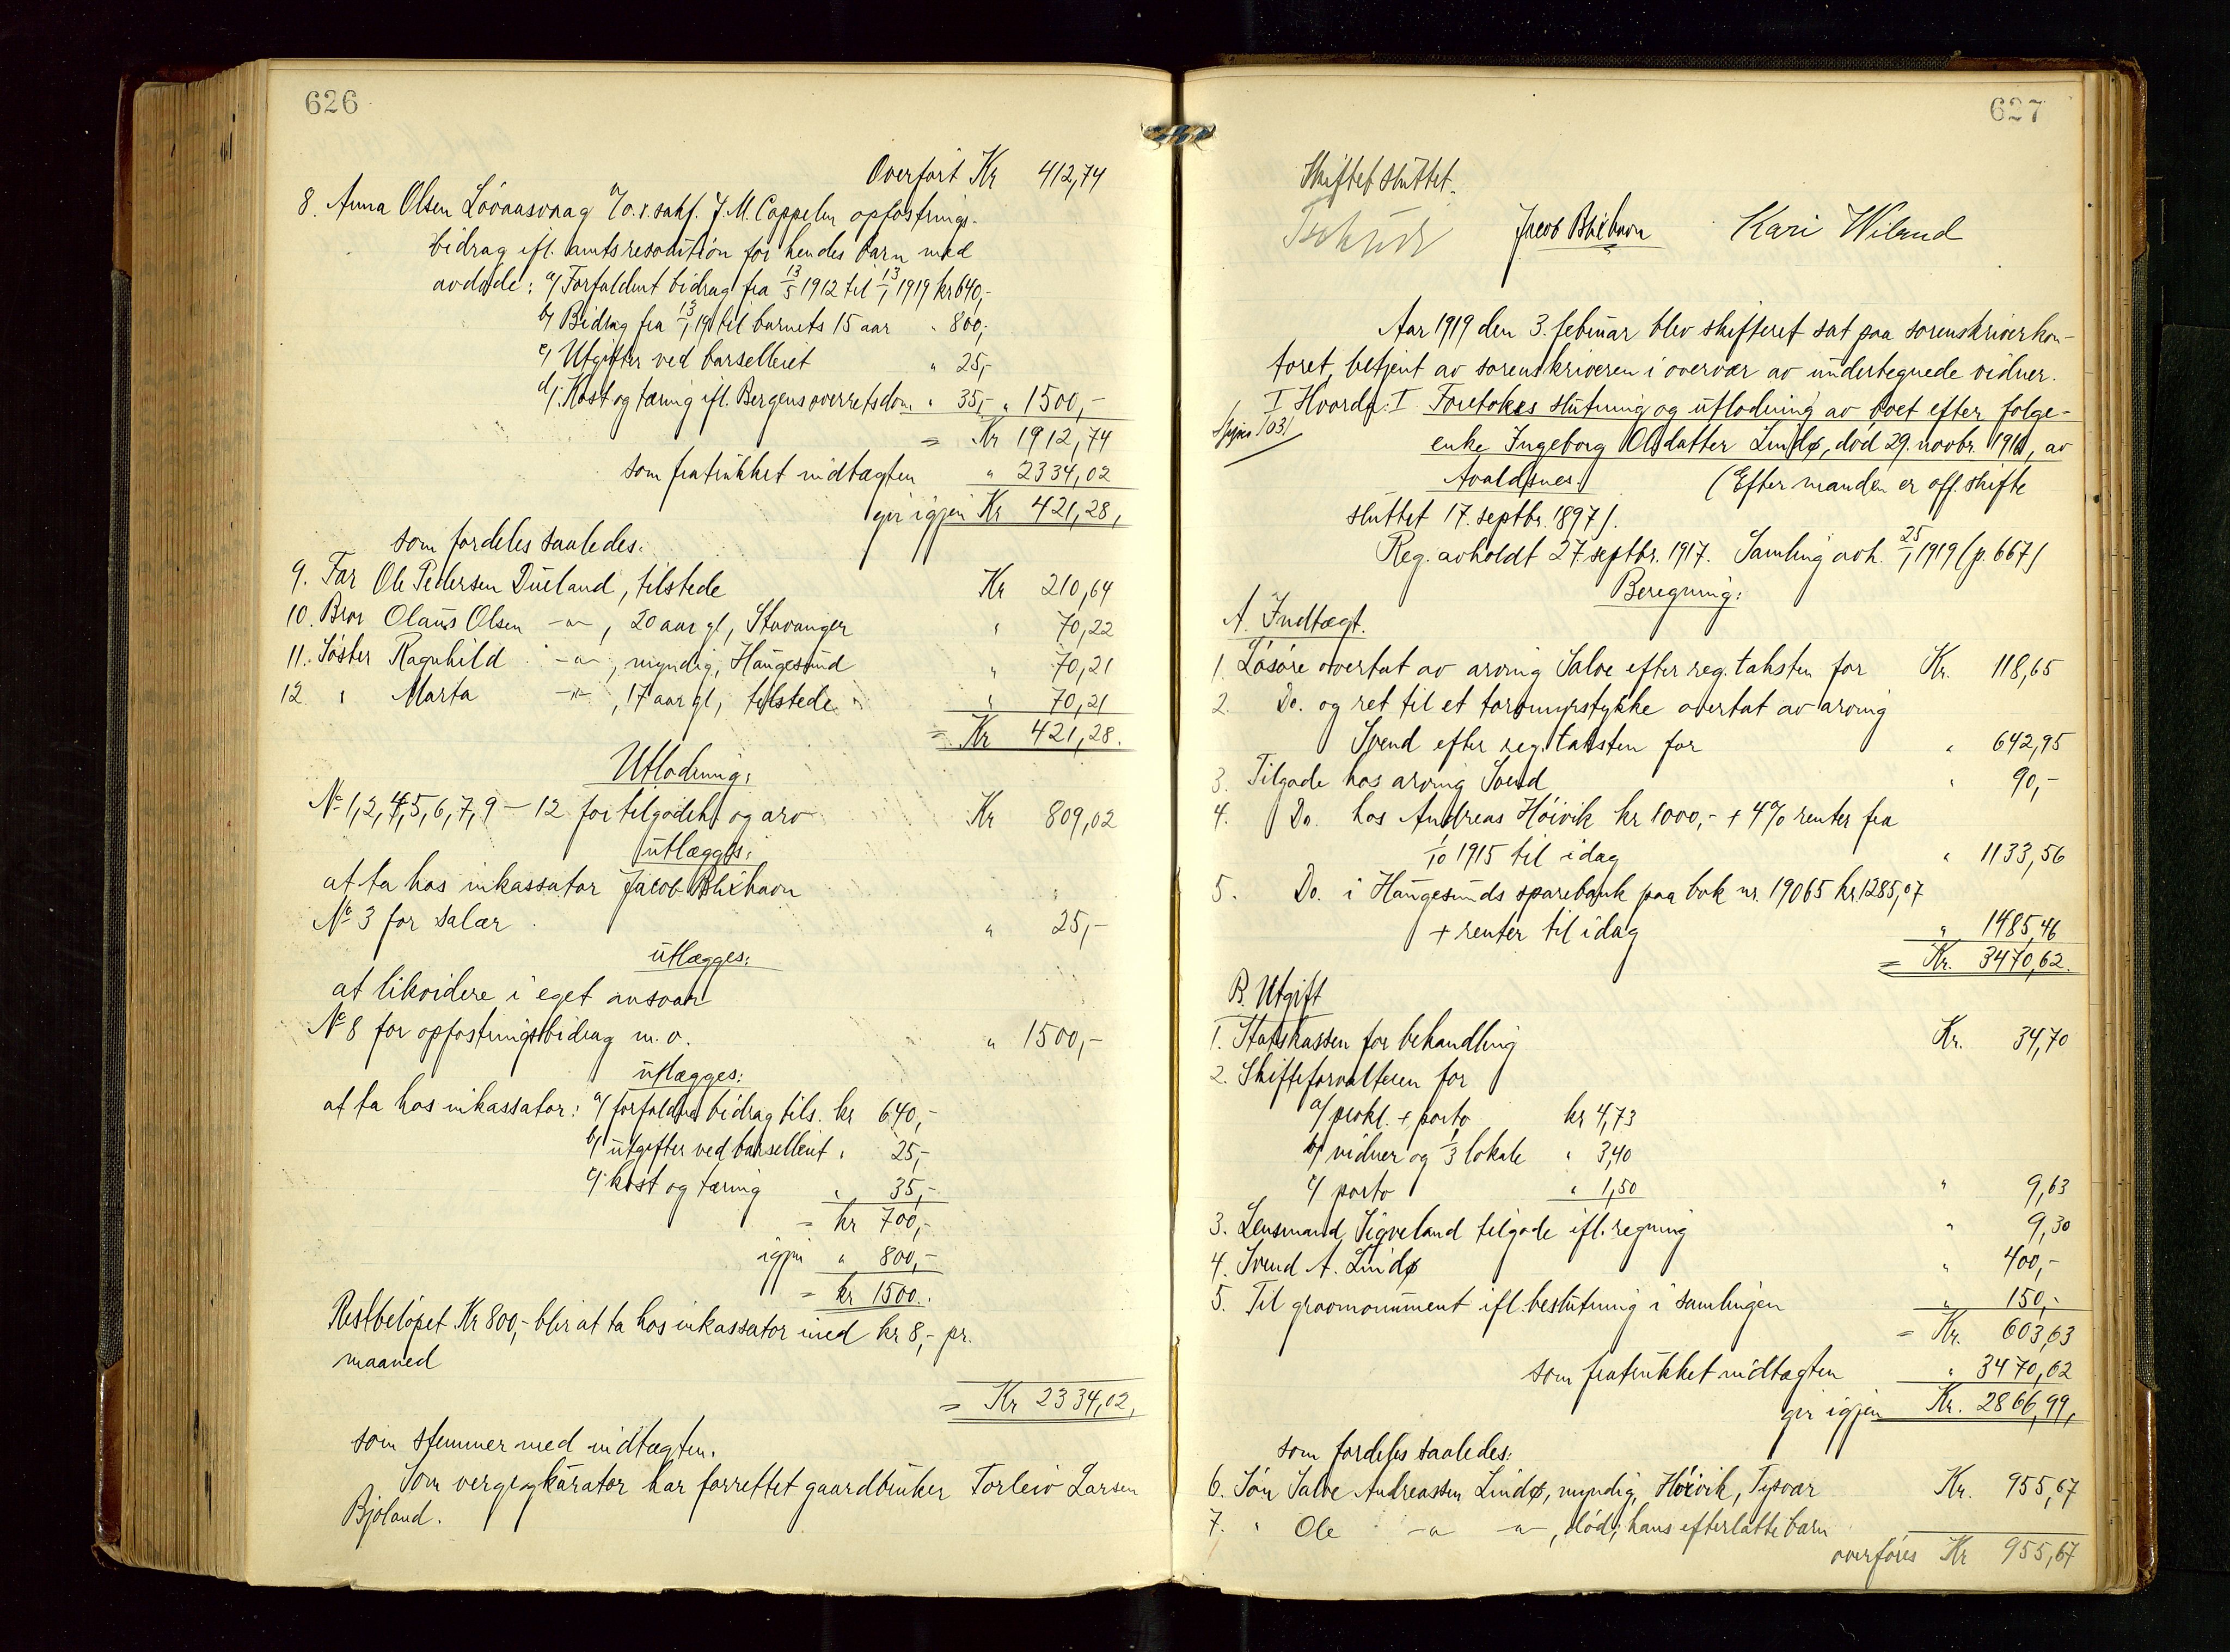 626
Overført Kr 412,74
8. Anna Olsen Lövaasvaag v/o.r.sakf. J. M. Cappelen opfostrings-
bidrag ifl. amtsresolution for hendes barn med
avdøde: a/ Forfaldent bidrag fra 13/5 1912 til 13/1 1919 kr 640,-
b/ Bidrag fra 13/1 19 til barnets 15 aar " 800,-
c/ Utgifter ved barselleiet " 25,-
d/ Kost og tæring ifl. Bergens overretsdom " 35,- " 1500,-
= Kr 1912,74
som fratrukket indtægten " 2334,02
gir igjen Kr 421,28,
som fordeles saaledes:
9. Far Ole Pedersen Dueland, tilstede Kr 210,64
10. Bror Olaus Olsen -"-, 20 aar gl, Stavanger " 70,22
11. Søster Ragnhild -"-, myndig, Haugesund " 70,21
12 " Marta -"-, 17 aar gl, tilstede " 70,21
= Kr 421,28.
Utlodning:
No 1, 2, 4, 5, 6, 7, 9 – 12 for tilgodeh. og arv Kr 809,02
utlægges:
at ta hos inkassator Jacob Blixhavn
No 3 for salær " 25,-
utlægges:
at likvidere i eget ansvar
No 8 for opfostringsbidrag m.v. " 1500,-
utlægges:
at ta hos inkassator: a/ forfaldne bidrag tils. kr 640,-
b/ utgifter ved barselleiet " 25,-
c/ kost og tæring " 35,-
= kr 700,-
igjen " 800,-
= kr 1500.
Restbeløpet Kr 800,- blir at ta hos inkassator med kr 8,- pr.
maaned
= Kr 2334,02,
som stemmer med indtægten.
Som verge og kurator har forrettet gaardbruker Torleiv Larsen
Bjoland.
627
Skiftet sluttet.
Jacob Blixhavn Kari Wiland
Aar 1919 den 3. februar blev skifteret sat paa sorenskriverkon-
toret, betjent av sorenskriveren i overvær av undertegnede vidner.
I Hvorda: I Foretokes slutning og utlodning av boet efter følge-
enke Ingeborg Olsdatter Lindø, død 29. novbr. 1916, av
Avaldsnes. (Efter manden er off. skifte
sluttet 17. septbr. 1897).
Reg. avholdt 27. septbr. 1917. Samling avh. 25/1 1919 (p. 667)
Beregning:
A. Indtægt.
1. Løsøre overtat av arving Salve efter reg. taksten for Kr. 118,65
2. Do. og ret til et torvmyrstykke overtat av arving
Svend efter reg. taksten for " 642,95
3. Tilgode hos arving Svend " 90,-
4. Do. hos Andreas Høivik kr 1000,- + 4% renter fra
1/10 1915 til idag " 1133,56
5. Do. i Haugesunds sparebank paa bok nr. 19065 kr. 1285,07
+ renter til idag " 1485,46
= Kr. 3470,62.
B. Utgift
1. Statskassen for behandling Kr. 34,70
2. Skifteforvalteren for
a/ prokl. + porto kr 4,73
b/ vidner og 1/3 lokale " 3,40
c/ porto " 1,50 " 9,63
3. Lensmand Sigveland tilgode ifl. regning " 9,30
4. Svend A. Lindø " 400,-
5. Til gravmonument ifl. beslutning i samlingen " 150,-
= Kr. 603,63
som fratrukket indtægten " 3470,62
gir igjen Kr. 2866,99,
som fordeles saaledes:
6. Søn Salve Andreassen Lindø, myndig, Høivik, Tysvær Kr. 955,67
7. " Ole -"- -"-, død; hans efterlatte barn
overføres Kr 955,67